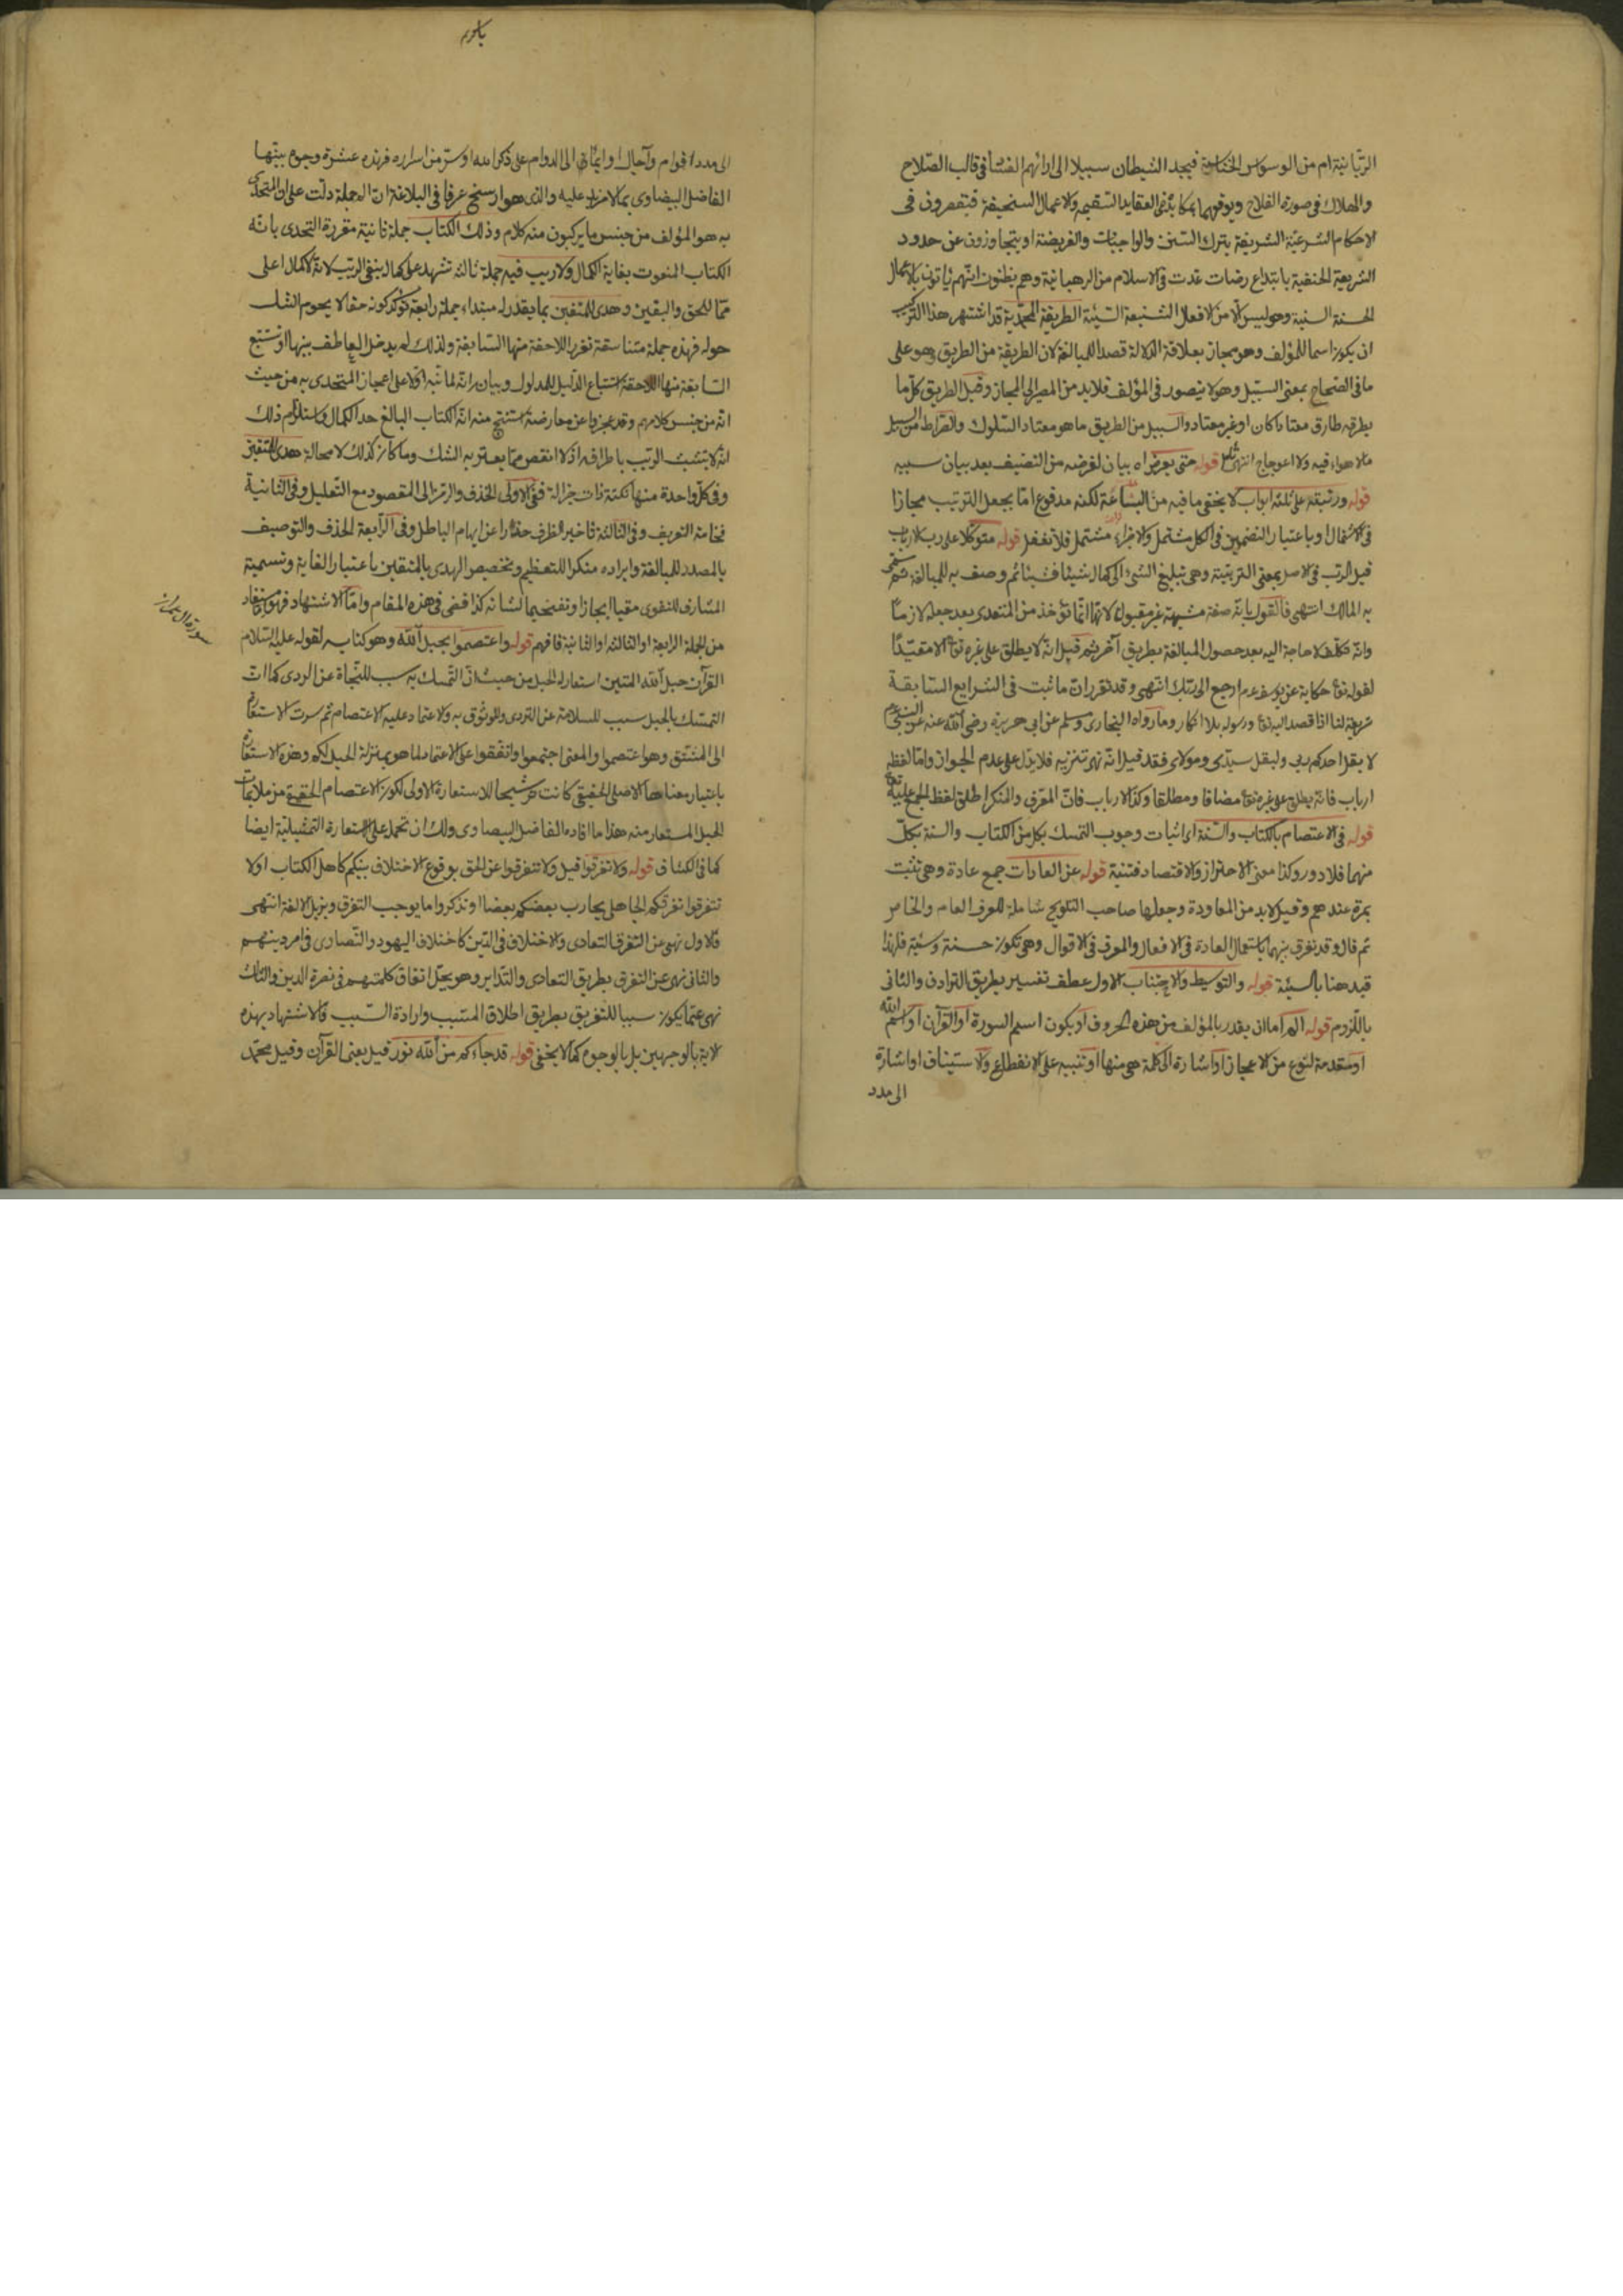 الربانية ام من الوسواس الخناسية فيجد الشيطان سبيلا الى ارائهم الفساد في قالب الصلاح
والهلاك في صورة الفلاح ويوقعهما بمكايد في العقايد السقيمه والاعمال السخيفة فيقصرون في
الاحكام الشرعية الشريفة بترك السنن والواجبات والفريضة او يتجاوزون عن حدود
الشريعة الحنفية بابتداع رضات عدت في الاسلام من الرهبانية وهم يظنون انهم يأتون بالاعمال
الحسنة السنية وهو ليس الا من الافعال الشنيعة السيئة الطريقة المحمدية قد اشتهر هذا التركيب
ان يكون اسما للمؤلف وهو مجاز بعلاقة الدلالة قصدا للمبالغة لان الطريقة من الطريق وهو على
ما في الصحاح بمعنى السبيل وهو لا يتصور في المؤلف فلا بد من المصير الى المجاز وقيل الطريق كل ما
يطرقه طارق معتادا كان او غير معتاد والسبيل من الطريق ما هو معتاد السلوك والصراط من السبيل
ما لا هواء فيه ولا اعوجاج انتهى قوله حتى يعرض اه بيان لغرضه من التصنيف بعد بيان سببه
قوله ورتبته على ثلثة ابواب لا يخفى ما فيه من البشاعة لكنه مدفوع اما بجعل الترتيب مجازا
في الاشتمال او باعتبار التضمين في الكل مشتمل والاجزاء مشتمل فلا تغفل قوله متوكلا على رب الارباب
قيل الرب في الاصل بمعنى التربيتة وهي تبليغ الشئ الى كماله شيئا فشيئا ثم وصف به للمبالغة ثم سمى
به المالك انتهى فالقول بانه صفة مشبهة غير مقبول لانها انما تؤخذ من المتعدى بعد جعله لازما
وانه تكلف لا حاجة اليه بعد حصول المبالغة بطريق آخر ثم قيل انه لا يطلق على غيره تعا الا مقيدا
لقوله تعا حكاية عن يوسف عم ارجع الى ربك انتهى وقد تقرر ان ما ثبت في الشرايع السابقة
شريعة لنا اذا قصه الله تعا ورسوله بلا انكار وما رواه البخارى ومسلم عن ابى هريرة رضى الله عنه عن النبى عم
لا يقل احدكم ربى وليقل سيدى ومولاى فقد قيل انه نهى تنزيه فلا يدل على عدم الجواز واما لفظه
ارباب فانه يطلق على غيره تعا مضافا ومطلقا وكذا الارباب فان المعرف والمنكر اطلق لفظ الجمع عليه تعا
قوله في الاعتصام بالكتاب والسنة اى اثبات وجوب التمسك بكل من الكتاب والسنة بكل
منهما فلا دور وكذا معنى الاحتراز والاقتصاد فتنبه قوله عن العادات جمع عادة وهي تثبت
بمرة عندهم وقيل لا بد من المعاودة وجعلها صاحب التلويح شاملة للعرف العام والخاص
ثم قال وقد يفرق بينهما باستعمال العادة في الافعال والعرف في الاقوال وهي تكون حسنة وسيئة فلهذا
قيد هنا بالسيئة قوله والتوسيط والاجتناب الاول عطف تفسير بطريق الترادف والثانى
باللزوم قوله الم اما ان يقدر بالمؤلف من هذه الحروف او يكون اسم السورة او القرآن او اسم الله
او مقدمة لنوع من الاعجاز او اشارة الى كلمة هي منها او تنبيه على الانقطاع والاستيناف او اشارة
الى مدد
الى مدد اقوام وآجال او ايماء الى الدوام على ذكر الله او ستر من اسراره فهذه عشرة وجوه بينها
الفاضل البيضاوى بما لا مزيد عليه والذى هو ارسخ عرفا في البلاغة ان الم جملة دلت على ان المتحدى
به هو المؤلف من جنس ما يركبون منه كلام وذلك الكتاب جملة ثانية مقررة التحدى بانه
الكتاب المنعوت بغاية الكمال ولا ريب فيه جملة ثالثة تشهد على كماله بنفى الريب لانه لا كمال اعلى
مما للحق واليقين وهدى للمتقين بما يقدر له مبتداء جملة رابعة تؤكد كونه حقا لا يحوم الشك
حوله فهذه جملة متناسقة تقرر اللاحقة منها السابقة ولذلك لم يدخل العاطف بينها او تستتبع
السابقة منها اللاحقة استتباع الدليل للمدلول وبيانه انه لما نبه اولا على اعجاز المتحدى به من حيث
انه من جنس كلامهم وقد عجزوا عن معارضته استنتج منه انه الكتاب البالغ حد الكمال واستلزم ذلك
انه لا يتشبث الريب باطرافه اذ لا انقص مما يعتريه الشك وما كان كذلك لا محالة هدى للمتقين
وفي كل واحدة منها نكتة ذات جزالة ففي الاولى الحذف والرمز الى المقصود مع التعليل وفي الثانية
فخامة التعريف وفي الثالثة تاخير الظرف حذرا عن ايهام الباطل وفي الرابعة الحذف والتوصيف
بالمصدر للمبالغة وايراده منكرا للتعظيم وتخصيص الهدى بالمتقين باعتبار الغاية وتسمية
المشارف للتقوى متقيا ايجازا وتفخيما لشانه كذا قضى في هذه المقام واما الاستشهاد فهو مستفاد
من الجملة الرابعة او الثالثة او الثانية فافهم قوله واعتصموا بحبل الله وهو كتابه لقوله عليه السلام
القرآن حبل الله المتين استعار له الحبل من حيث ان التمسك به سبب للنجاة عن الردى كما ان
التمسك بالحبل سبب للسلامة عن التردى وللوثوق به والاعتماد عليه الاعتصام ثم سرت الاستعارة
الى المشتق وهو اعتصموا والمعنى اجتمعوا واتفقوا على الاعتماد لما هو بمنزلة الحبل لكم وهذه الاستعارة
باعتبار معناها الاصلى الحقيقى كانت ترشيحا للاستعارة الاولى لكون الاعتصام الحقيقى من ملائمات
الحبل المستعار منه هذا ما افاده الفاضل البيضاوى ولك ان تحمل على استعارة التمثيلية ايضا
كما في الكشاف قوله ولا تفرقوا قيل ولا تتفرقوا عن الحق بوقوع الاختلاف بينكم كاهل الكتاب او لا
تتفرقوا تفرقكم الجاهلى يحارب بعضكم بعضا او تذكروا ما يوجب التفرق ويزيل الالفة انتهى
فالاول نهى عن التفرق التعادى والاختلاف في الدين كاختلاف اليهود والنصارى في امر دينهم
والثانى نهى عن التفرق بطريق التعادى والتدابر وهو يخل اتفاق كلمتهم في نصرة الدين والثالث
نهى عما يكون سببا للتفريق بطريق اطلاق المسبب وارادة السبب فالاستشهاد بهذه
الاية بالوجهين بل بالوجوه كما لا يخفى قوله قد جاءكم من الله نور قيل يعنى القرآن وقيل محمد
سورة ال عمران